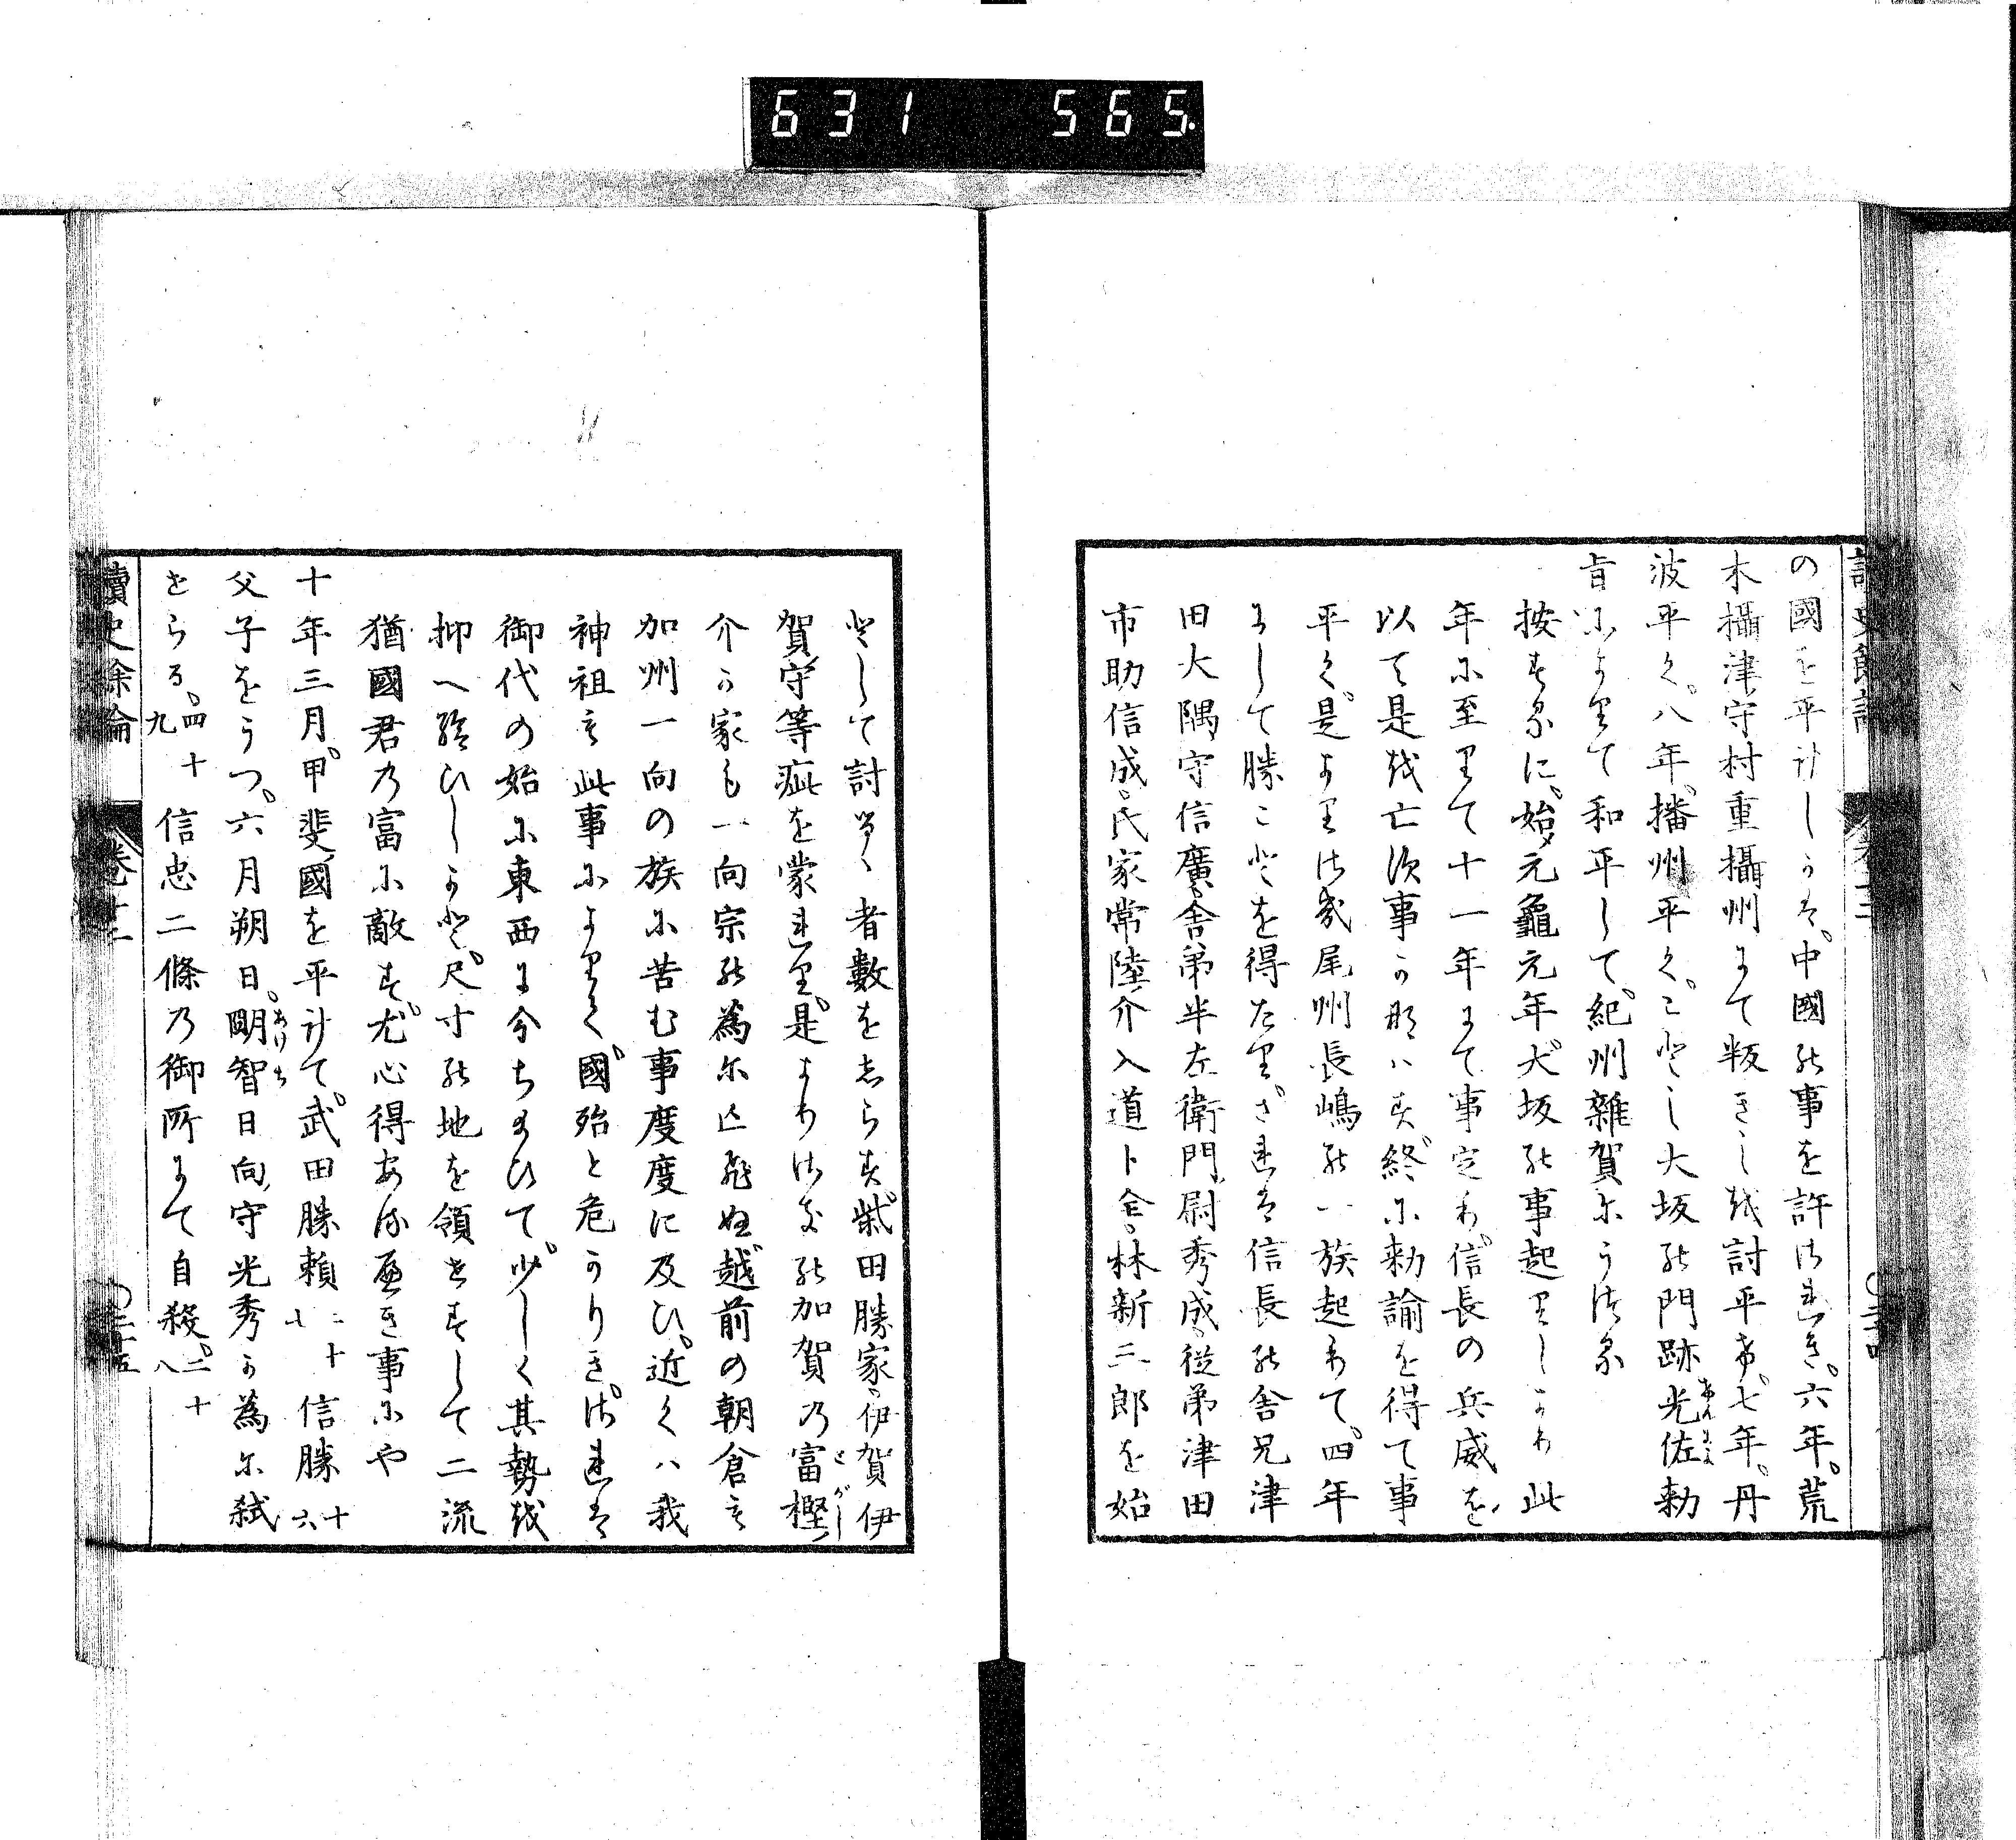 631 565.
の國を平けしうは。中國の事を許されき。六年。荒
木攝津守村重攝州にて叛きしを討平け。七年。丹
波平く。八年。播州平く。ことし大坂の門跡光佐勅
旨によりて和平して。紀州雜賀にうつる
按するに。始元龜元年大坂の事起りしより此
年に至りて十一年にて事定り。信長の兵威を
以てこれを亡す事かなはす。終に勅諭を得て事
平く。是よりさき尾州長嶋の一族起りて。四年
にして勝ことを得たり。されは信長の舍兄津
田大隅守信廣。舍弟半左衛門尉秀成。從弟津田
市助信成。氏家常陸介入道卜全。林新三郎を始
として討るゝ者數をしらす。柴田勝家。伊賀伊
賀守等疵を蒙れり。是よりさき加賀の富樫
介か家も一向宗の為に亡ひぬ越前の朝倉も
加州一向の族に苦む事度度に及ひ。近くは我
神祖も此事によりて國殆と危かりき。されは
御代の始に東西に分ちたまひて。少しく其勢を
抑へ給ひしかと。尺寸の地を領せすして二流
猶國君の富に敵す。尤心得あるへき事にや
十年三月。甲斐國を平けて。武田勝頼三十七信勝十六
父子をうつ。六月朔日。明智日向守光秀か為に弑
せらる。四十九信忠二條の御所にて自殺。二十八
讀史餘論 卷十二 三十五